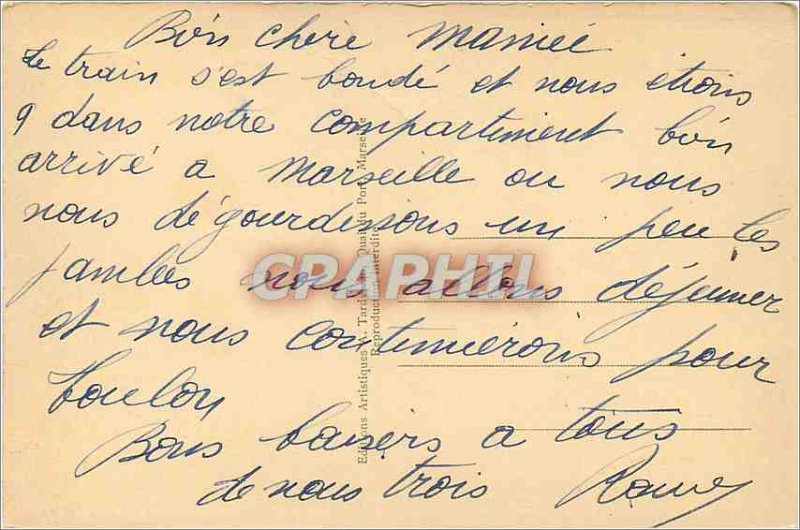 Bon chère mamieé
Le train s'est bondé et nous étions
9 dans notre compartiment bon
arrivé a Marseille ou nous
nous dégourdissons un peu les
jambes nous allons déjeuner
et nous continuerons pour
Toulon
Bons baisers a tous
de nous trois
Editions Artistiques A. Tardy, Quai du Port, Marseille
Reproduction Interdite
CPAPHIL